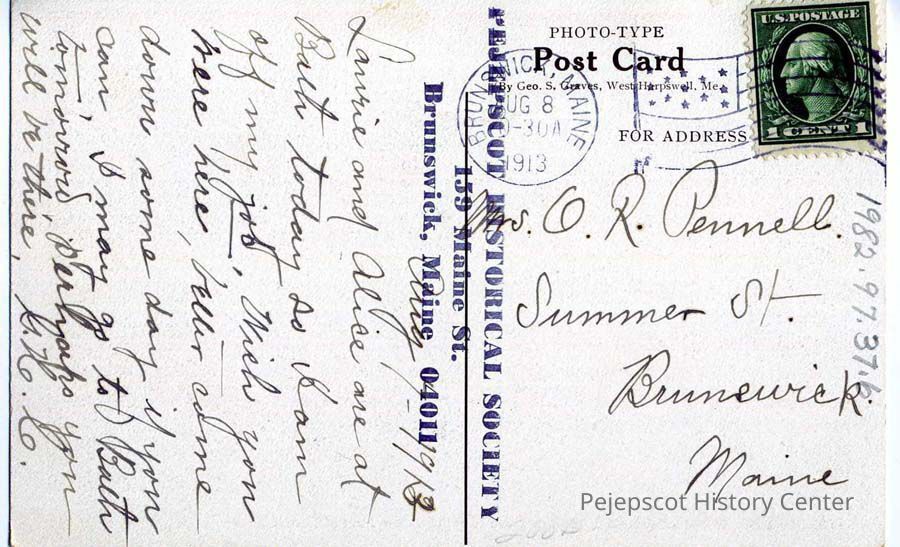 PHOTO-TYPE
Post Card
By Geo. S. Graves, West Harpswell, Me.
FOR ADDRESS
U.S. POSTAGE
1 CENT 1
BRUNSWICK, MAINE
AUG 8
-30A
1913
Mrs. O. R. Pennell.
Summer St.
Brunswick.
Maine
1982.97.37.b
PEJEPSCOT HISTORICAL SOCIETY
159 Maine St.
Brunswick, Maine 04011
Aug. 7-1913
Laurie and Alice are at
Bath today so I am
off my job. Wish you
were here, better come
down some day if you
can. I may go to Bath
tomorrow, perhaps you
will be there.
Pejepscot History Center